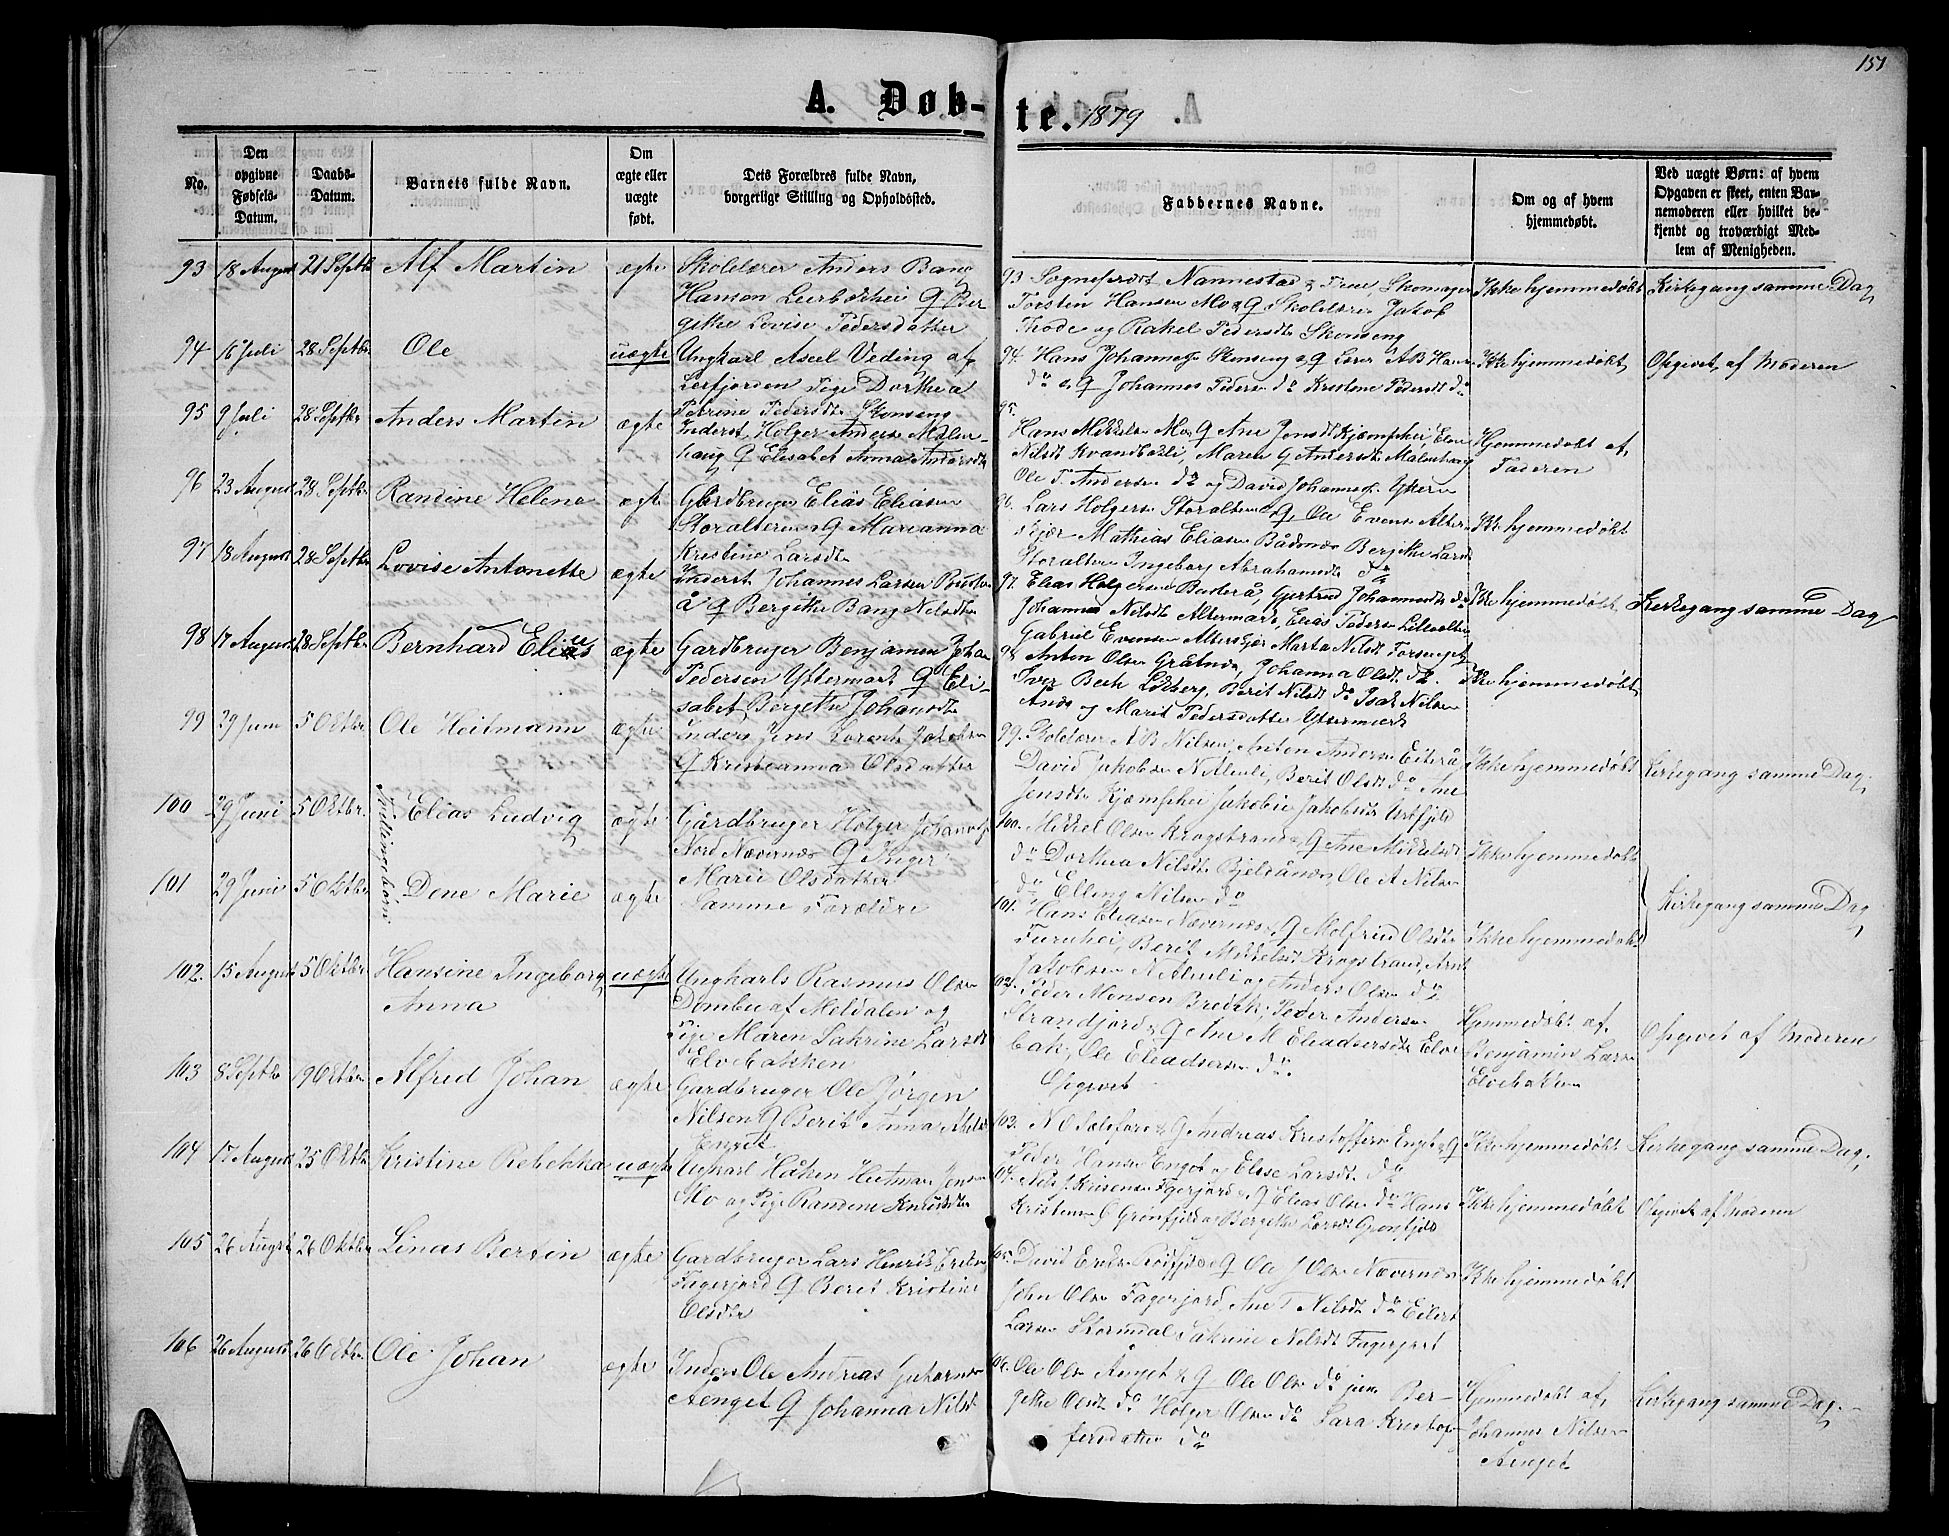 151
A. Døbte. 1879
No.
Den opgivne Fødsels-Datum.
Daabs-Datum.
Barnets fulde Navn.
Om ægte eller uægte født.
Dets Forældres fulde Navn, borgerlige Stilling og Opholdssted.
Faddernes Navne.
Om og af hvem hjemmedøbt.
Ved uægte Børn: af hvem Opgaven er skeet, enten Barnemoderen eller hvilket bekjendt og troværdigt Medlem af Menigheden.
93 18 August 21 Septbr Alf Martin ægte
Skolelærer Anders Bang
Hanson Q Ber
githe Lovise Pedersdatter
93 Sogneprest Nannestad & Frue, Skomager
Torsten Hansen Mo & Q Skolelærer Jakob
Thode og Rakel Pedersdt Skonseng
Ikke hjemmedøbt
Kirkegang samme Dag
94 16 Juli 28 Septbr Ole uægte
Ungkarl Axel Veding af
Lerfjorden Pige Dorthea
Petrine Pedersdt Skonseng
94. Hans Johannes Skonseng & Q Lærer A B Hans
do & Q Johannes Peders do Kristene Pedersdt do
Ikke hjemmedøbt
Opgivet af Moderen
95 9 Juli 28 Septbr Anders Martin ægte
Inderst Holger Anders Malm-
haug Q Elisabet Anna Andersdt
95.
Hans Mikkelsen Mo & Q Ane Jensdt Kjæmphei, Elen
Nilsdt Kvandbakli, Maren Q Andersdt Malmhaug
Ole T. Andersen do og David Johannes Ytteren
Hjemmedøbt af
Faderen
96 23 August 28 Septbr Randine Helene ægte
Gårdbruger Eliäs Eliasen
Storalteren & Q Marianna
Kristine Larsdtr
96. Lars Holgersen Storalteren & Q, Ole Evensen Alter-
skjær Mathias Eliasen Bådsnes Bergithe Larsdt
Storalteren Ingeborg Abrahamsdt do
Ikke hjemmedøbt
97 18 August 28 Septbr Lovise Antonette ægte
Inderst Johannes Larsen
å Q Bergithe Bang Nilsdtr
97. Elias Holgersen Buster å, Gjertrud Johannesdt do
Johanna Nilsdt Altermark, Elias Pedersen Lillealteren
Gabriel Evensen Alterskjær Marta Nilsdt
Ikke hjemmedøbt
Kirkegang samme Dag
98 17 August 28 Septbr Bernhard Elieus ægte
Gardbruger Benjamin Johan
Pedersen Yttermark Q Eli-
sabet Bergethe Johansdtr
98 Anton Olsen Gratnes, Johanna Olsdt do.
Iver Bech Lidberg, Berit Nilsdt do Isak Nilsen
og Marit Pedersdatter Yttermark
Ikke hjemmedøbt
99 29 Juni 5 Oktbr Ole Heitmann ægte
Inders Jens Lorents Jakobsen
Q Kristeanna Olsdatter
99. Skolelærer A B Nilsen, Anton Andersen Eiterå
David Jakobsen N Aluli, Berit Olsdt do Ane
Jensdt Kjæmphei Jakobin Jakobsdt Urtfjeld
Ikke hjemmedøbt
Kirkegang samme Dag
Tvillingebørn
100 29 Juni 5 Oktbr. Elias Ludvig ægte
Gårdbruger Holger Johannes
Nord Nævernes Q Inger
Marie Olsdatter
100. Mikkel Olsen Krogstrand & Q Ane Mikkelsdt
do Dorthea Nilsdt Bjeldånes, Ole A Nilsen
do Elling Nilsen do
Ikke hjemmedøbt
101 29 Juni 5 Oktbr Dene Marie ægte
Samme Forældre
101. Hans Eliasen Nævernes, Q Molfrid Olsdtr
Furuhei, Berit Mikkelsdt Krogstrand, Arnt
Jakobsen N Aluli og Anders Olsen do
Ikke hjemmedøbt
Kirkegang samme Dag
102. 15 August 5 Oktbr Hansine Ingeborg
Anna uægte
Ungkarls Rasmus Olsen
Dombu af Meldalen og
Pige Maren Sakrine Larsdt
Elvebakken
102. Peder Monsen Bredek, Peder Andersen
Strandjord & Q Ane M Eleadsersdtr Elve
bak, Ole Eleadsersen do.
Opgivet
Hjemmedøbt af
Benjamin Larsen
Elvebakken
Opgivet af Moderen
103 8 Septbr 19 Oktbr Alfred Johan ægte
Gardbruger Ole Jørgen
Nilsen Q Berit Anna
Enget
103. N O Selfors & Q Andreas Kristoffersen Enget & Q
Peder Hansen Enget og Elese Larsdt do
Ikke hjemmedøbt
Kirkegang samme Dag,
104 17 August 25 Oktbr Kristine Rebekka uægte
Ungkarl Håken Heitman Jensen
Mo og Pige Randine Knudsdtr
104. Nils J. Krisensen Fagerjord & Q Elias Olsen do Hans
Kristensen Grønfjeld & Bergithe Larsdt Grønfjeld
Ikke hjemmedøbt
Opgivet af Moderen
105 26 Augst 26 Oktbr Linas Bertin ægte
Gardbruger Lars Henrik Eriksen
Fagerjord Q Beret Kristine
Olsdtr
105. David Eriksen & Q Ole J Olsen Nævernes
John Olsen Fagerjord, Ane T Nilsdt do Eilert
Larsen Stormdal Sakrine Nilsdt Fagerjord
Ikke hjemmedøbt
106 26 August 26 Oktbr Ole Johan ægte
Inders Ole Andreas Johannes
Aenget Q Johanna Nilsdt
106. Ole Olsen Ånget & Q Ole Olsen do jun Ber-
githe Olsdt do Holger Olsen do Sara Kristof-
fersdatter do
Hjemmedøbt af
Johannes Nilsen
Ånget
Kirkegang samme Dag.